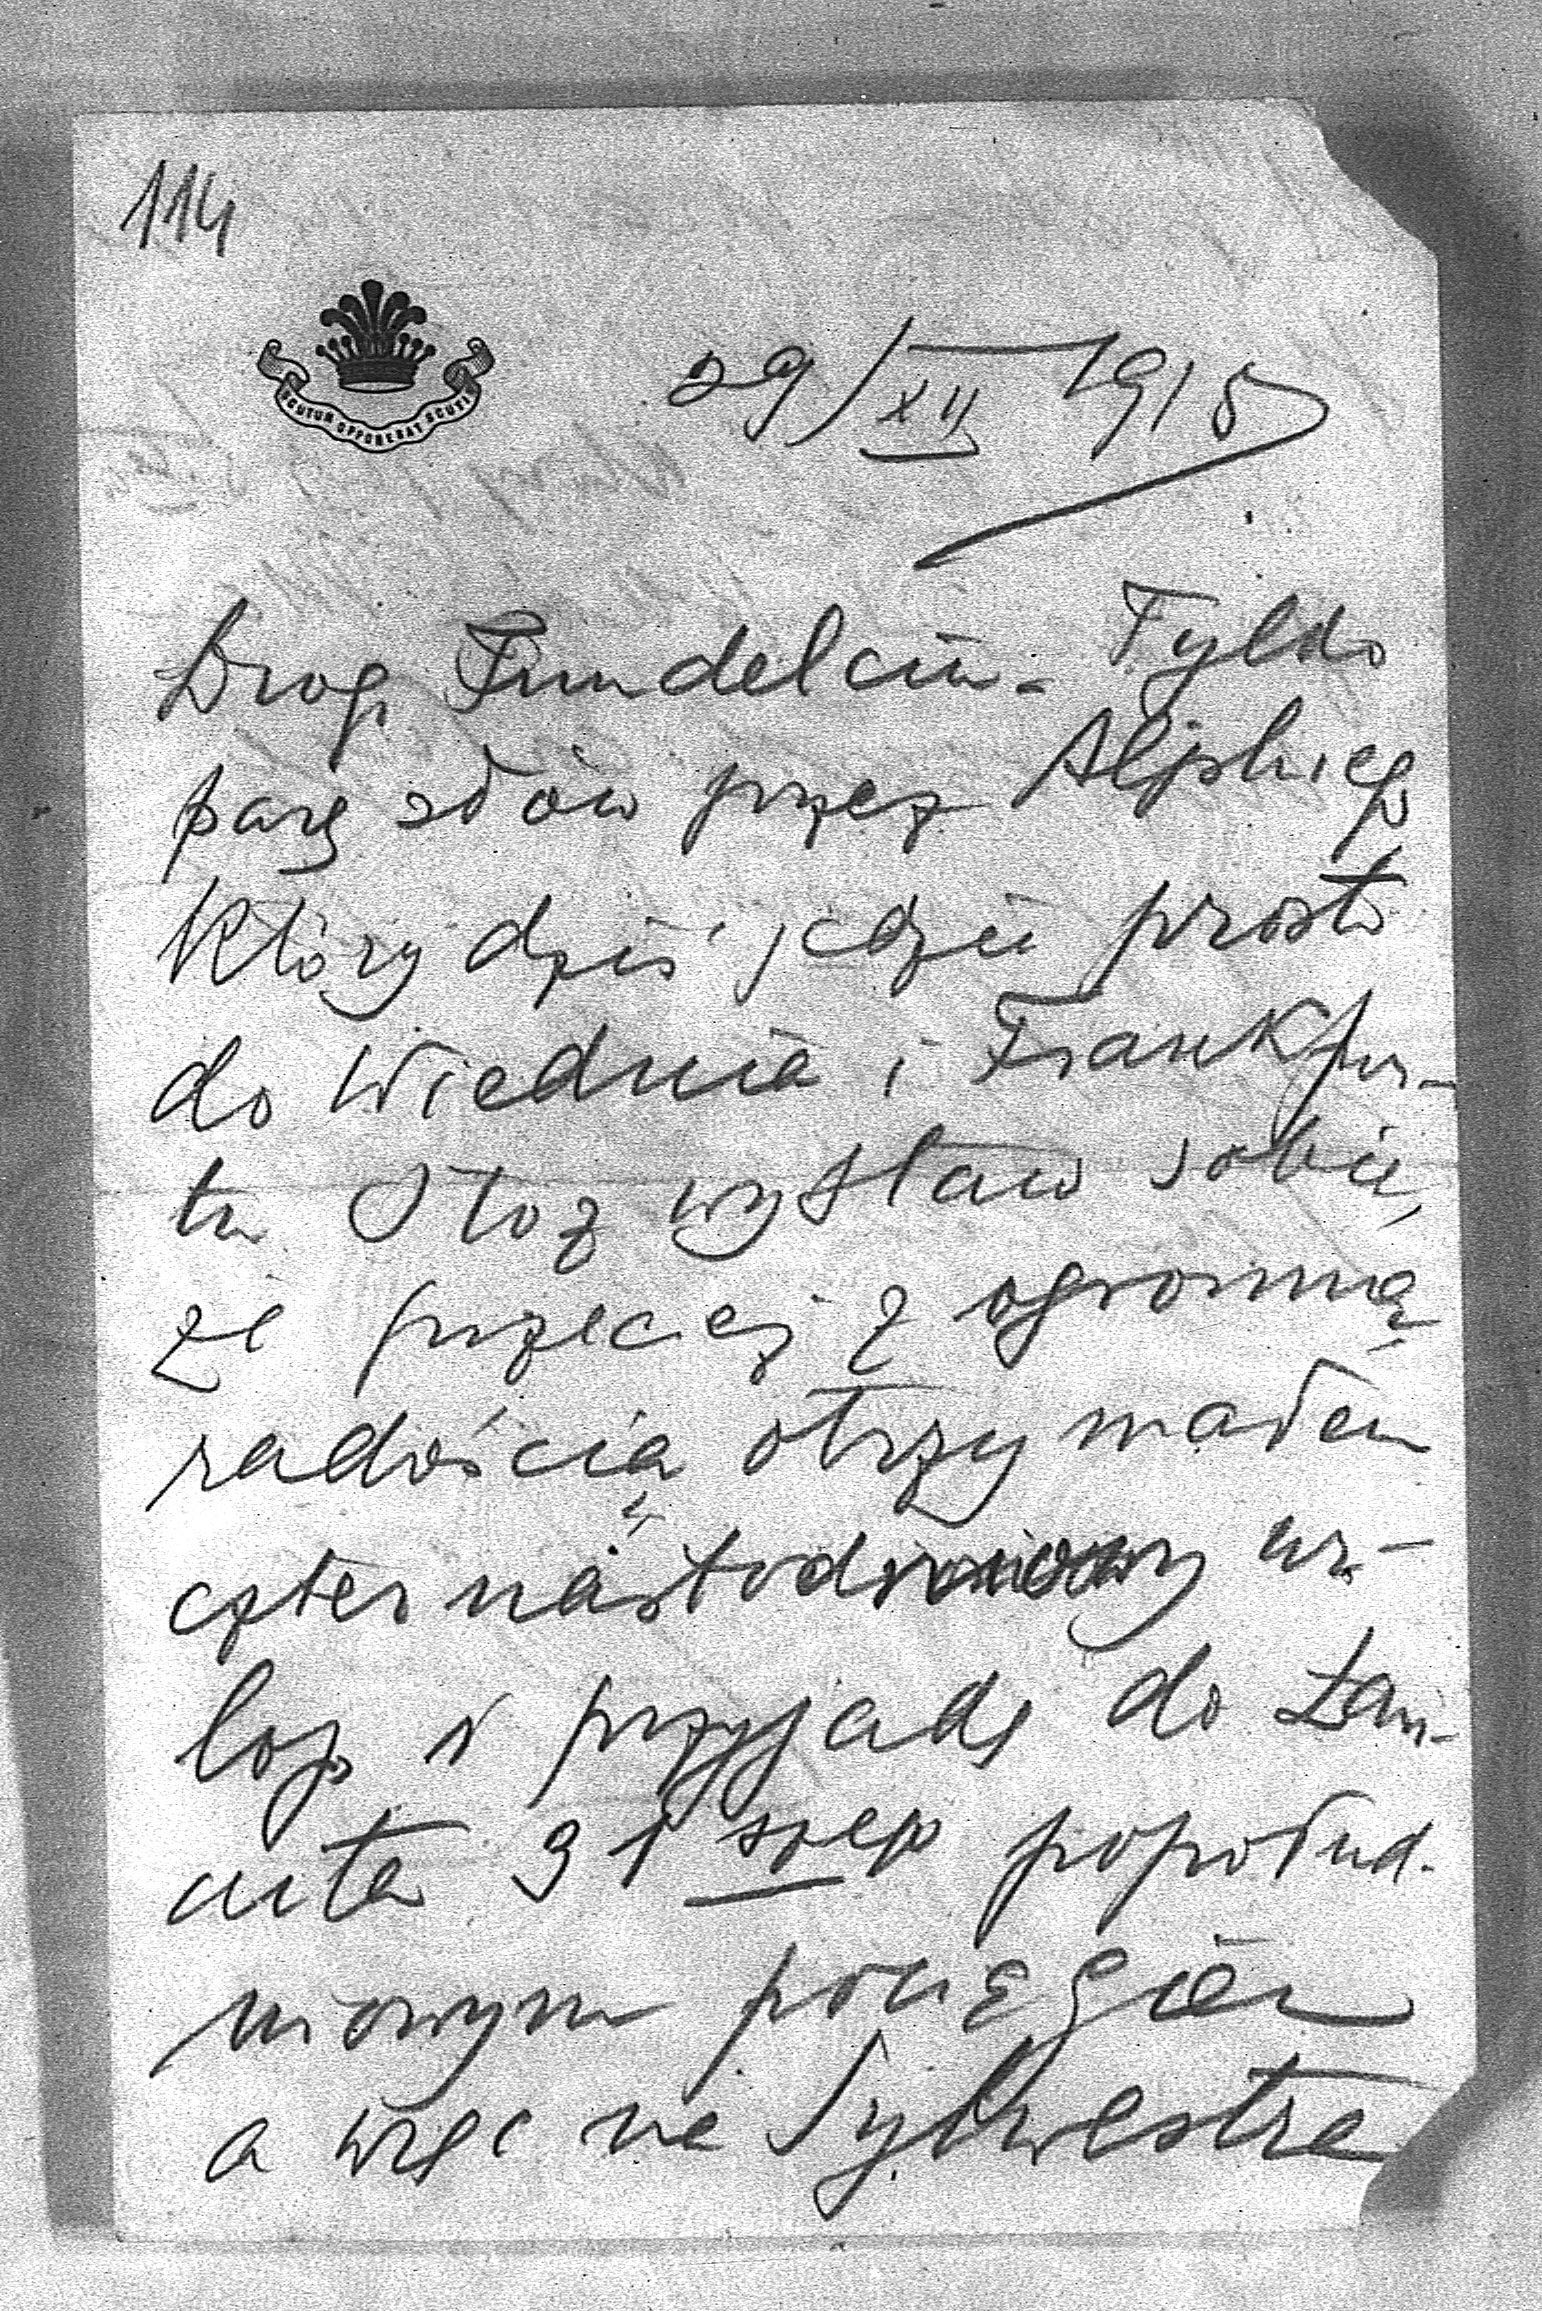 114
SCUTUM OPPONEBAT SCUTIS
29/XII 1915
Drogi Fundelciu - Tylko
parę słów przez
który dziś jedzie prosto
do Wiednia i Frankfur-
tu Otoż wystaw sobie,
że przecież z ogromną
radością otrzymałem
czternastodniowy ur-
lop i przyjadę do Łań-
cuta 31 szego popołud-
niowym pociągiem
a więc na Sylwestra